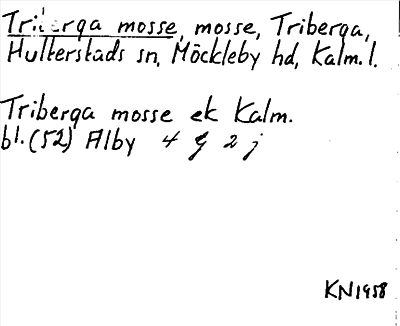 Triberga mosse, mosse, Triberga,
Hulterstads sn, Möckleby hd, Kalm. l.
Triberga mosse ek Kalm.
bl. (52) Alby 4 g 2 j
KN1958